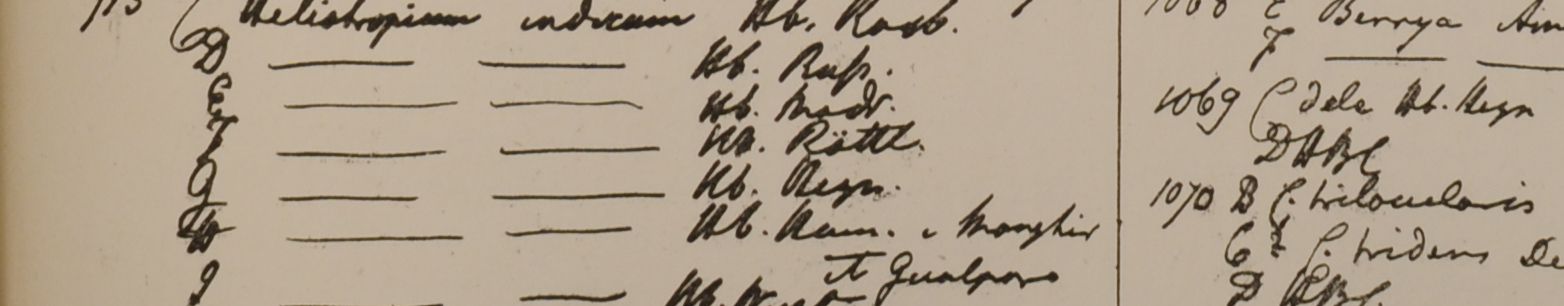 C Heliotropium indicum Hb. Roxb.
D ——— ——— Hb. Russ.
E ——— ——— Hb. Madr.
F ——— ——— Hb. Rottl.
G ——— ——— Hb. Heyn.
H ——— ——— Hb. Ham. e Monghir
et Gualpara
I ——— ———
1068 E Berrya Am
F ——— ———
1069 C dele Hb. Heyn
D HBC
1070 B C. trilocularis
C C. tridens
D HBC